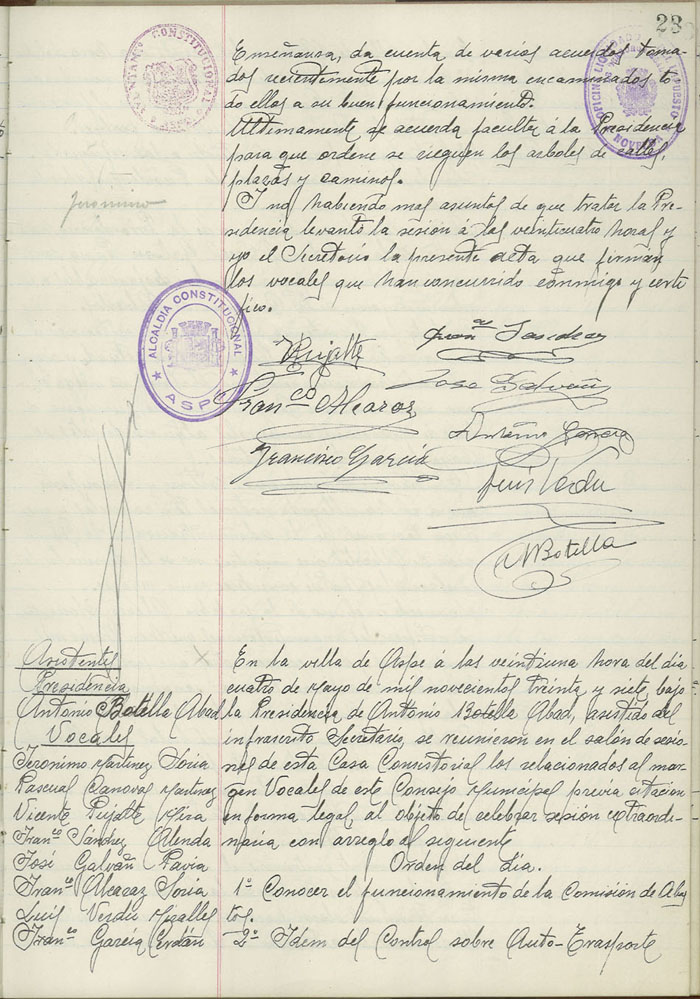 28
AYUNTAMº CONSTITUCIONAL
OFICINA LIQUIDADORA DEL IMPUESTO
NOVELDA
Enseñanza, da cuenta de varios acuerdos toma-
dos recientemente por la misma encaminados to-
do ellos a su buen funcionamiento.
Ultimamente se acuerda facultar á la Presidencia
para que ordene se rieguen los arboles de calles,
plazas y caminos.
Y no habiendo mas asuntos de que tratar la Pre-
sidencia levantó la sesión á las veinticuatro horas y
yo el Secretario la presente acta que firman
los vocales que han concurrido conmigo y certi-
fico.
Jeronimo
ALCALDIA CONSTITUCIONAL
ASPE
VPujalte
Franco Sanchez
Franco Alcaraz
José Galvañ
Francisco García
Antonio García
Luis Verdu
ABotella
Asistentes
Presidencia
Antonio Botella Abad
Vocales
Jeronimo Martinez Soria
Pascual Canoval Martinez
Vicente Pujalte Mira
Franco Sánchez Alenda
José Galvañ Pavia
Franco Alcaraz Soria
Luis Verdú Miralles
Franco García Cerdán
En la villa de Aspe á las veintiuna hora del dia
cuatro de Mayo de mil novecientos treinta y siete, bajo
la Presidencia de Antonio Botella Abad, asistido del
infrascrito Secretario, se reunieron en el salón de sesio-
nes de esta Casa Consistorial los relacionados al mar-
gen Vocales de este Consejo Municipal previa citación
en forma legal al objeto de celebrar sesión extraordi-
naria con arreglo al siguiente
Orden del Dia.
1º Conocer el funcionamiento de la Comisión de Abas-
tos.
2º Idem del Control sobre Auto-Trasporte